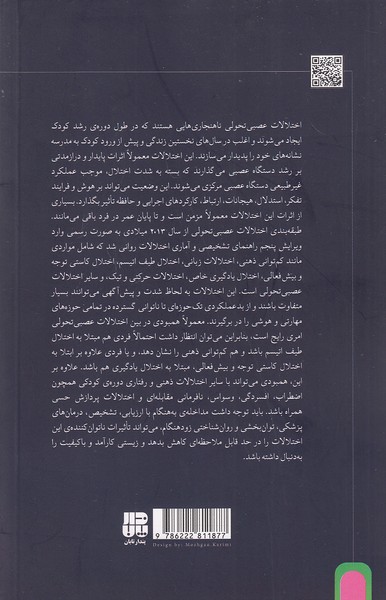 اختلالات عصبی‌تحولی ناهنجاری‌هایی هستند که در طول دوره‌ی رشد کودک
ایجاد می‌شوند و اغلب در سال‌های نخستین زندگی و پیش از ورود کودک به مدرسه
نشانه‌های خود را پدیدار می‌سازند. این اختلالات معمولاً اثرات پایدار و درازمدتی
بر رشد دستگاه عصبی می‌گذارند که بسته به شدت اختلال، موجب عملکرد
غیرطبیعی دستگاه عصبی مرکزی می‌شوند. این وضعیت می‌تواند بر هوش و فرایند
تفکر، استدلال، هیجانات، ارتباط، کارکردهای اجرایی و حافظه تأثیر بگذارد. بسیاری
از اثرات این اختلالات معمولاً مزمن است و تا پایان عمر در فرد باقی می‌مانند.
طبقه‌بندی اختلالات عصبی‌تحولی از سال ۲۰۱۳ میلادی به صورت رسمی وارد
ویرایش پنجم راهنمای تشخیصی و آماری اختلالات روانی شد که شامل مواردی
مانند کم‌توانی ذهنی، اختلالات زبانی، اختلال طیف اتیسم، اختلال کاستی توجه
و بیش‌فعالی، اختلال یادگیری خاص، اختلالات حرکتی و تیک، و سایر اختلالات
عصبی‌تحولی است. این اختلالات به لحاظ شدت و پیش‌آگهی می‌توانند بسیار
متفاوت باشند و از بدعملکردی تک‌حوزه‌ای تا ناتوانی گسترده در تمامی حوزه‌های
مهارتی و هوشی را در برگیرند. معمولاً همبودی در بین اختلالات عصبی‌تحولی
امری رایج است، بنابراین می‌توان انتظار داشت احتمالاً فردی هم مبتلا به اختلال
طیف اتیسم باشد و هم کم‌توانی ذهنی را نشان دهد، و یا فردی علاوه بر ابتلا به
اختلال کاستی توجه و بیش‌فعالی، مبتلا به اختلال یادگیری هم باشد. علاوه بر
این، همبودی می‌تواند با سایر اختلالات ذهنی و رفتاری دوره‌ی کودکی همچون
اضطراب، افسردگی، وسواس، نافرمانی مقابله‌ای و اختلالات پردازش حسی
همراه باشد. باید توجه داشت مداخله‌ی به‌هنگام با ارزیابی، تشخیص، درمان‌های
پزشکی، توان‌بخشی و روان‌شناختی زودهنگام، می‌تواند تأثیرات ناتوان‌کننده‌ی این
اختلالات را در حد قابل ملاحظه‌ای کاهش بدهد و زیستی کارآمد و باکیفیت را
به‌دنبال داشته باشد.
9 786222 811877
پندار تابان
Design by: Mozhgan Karimi